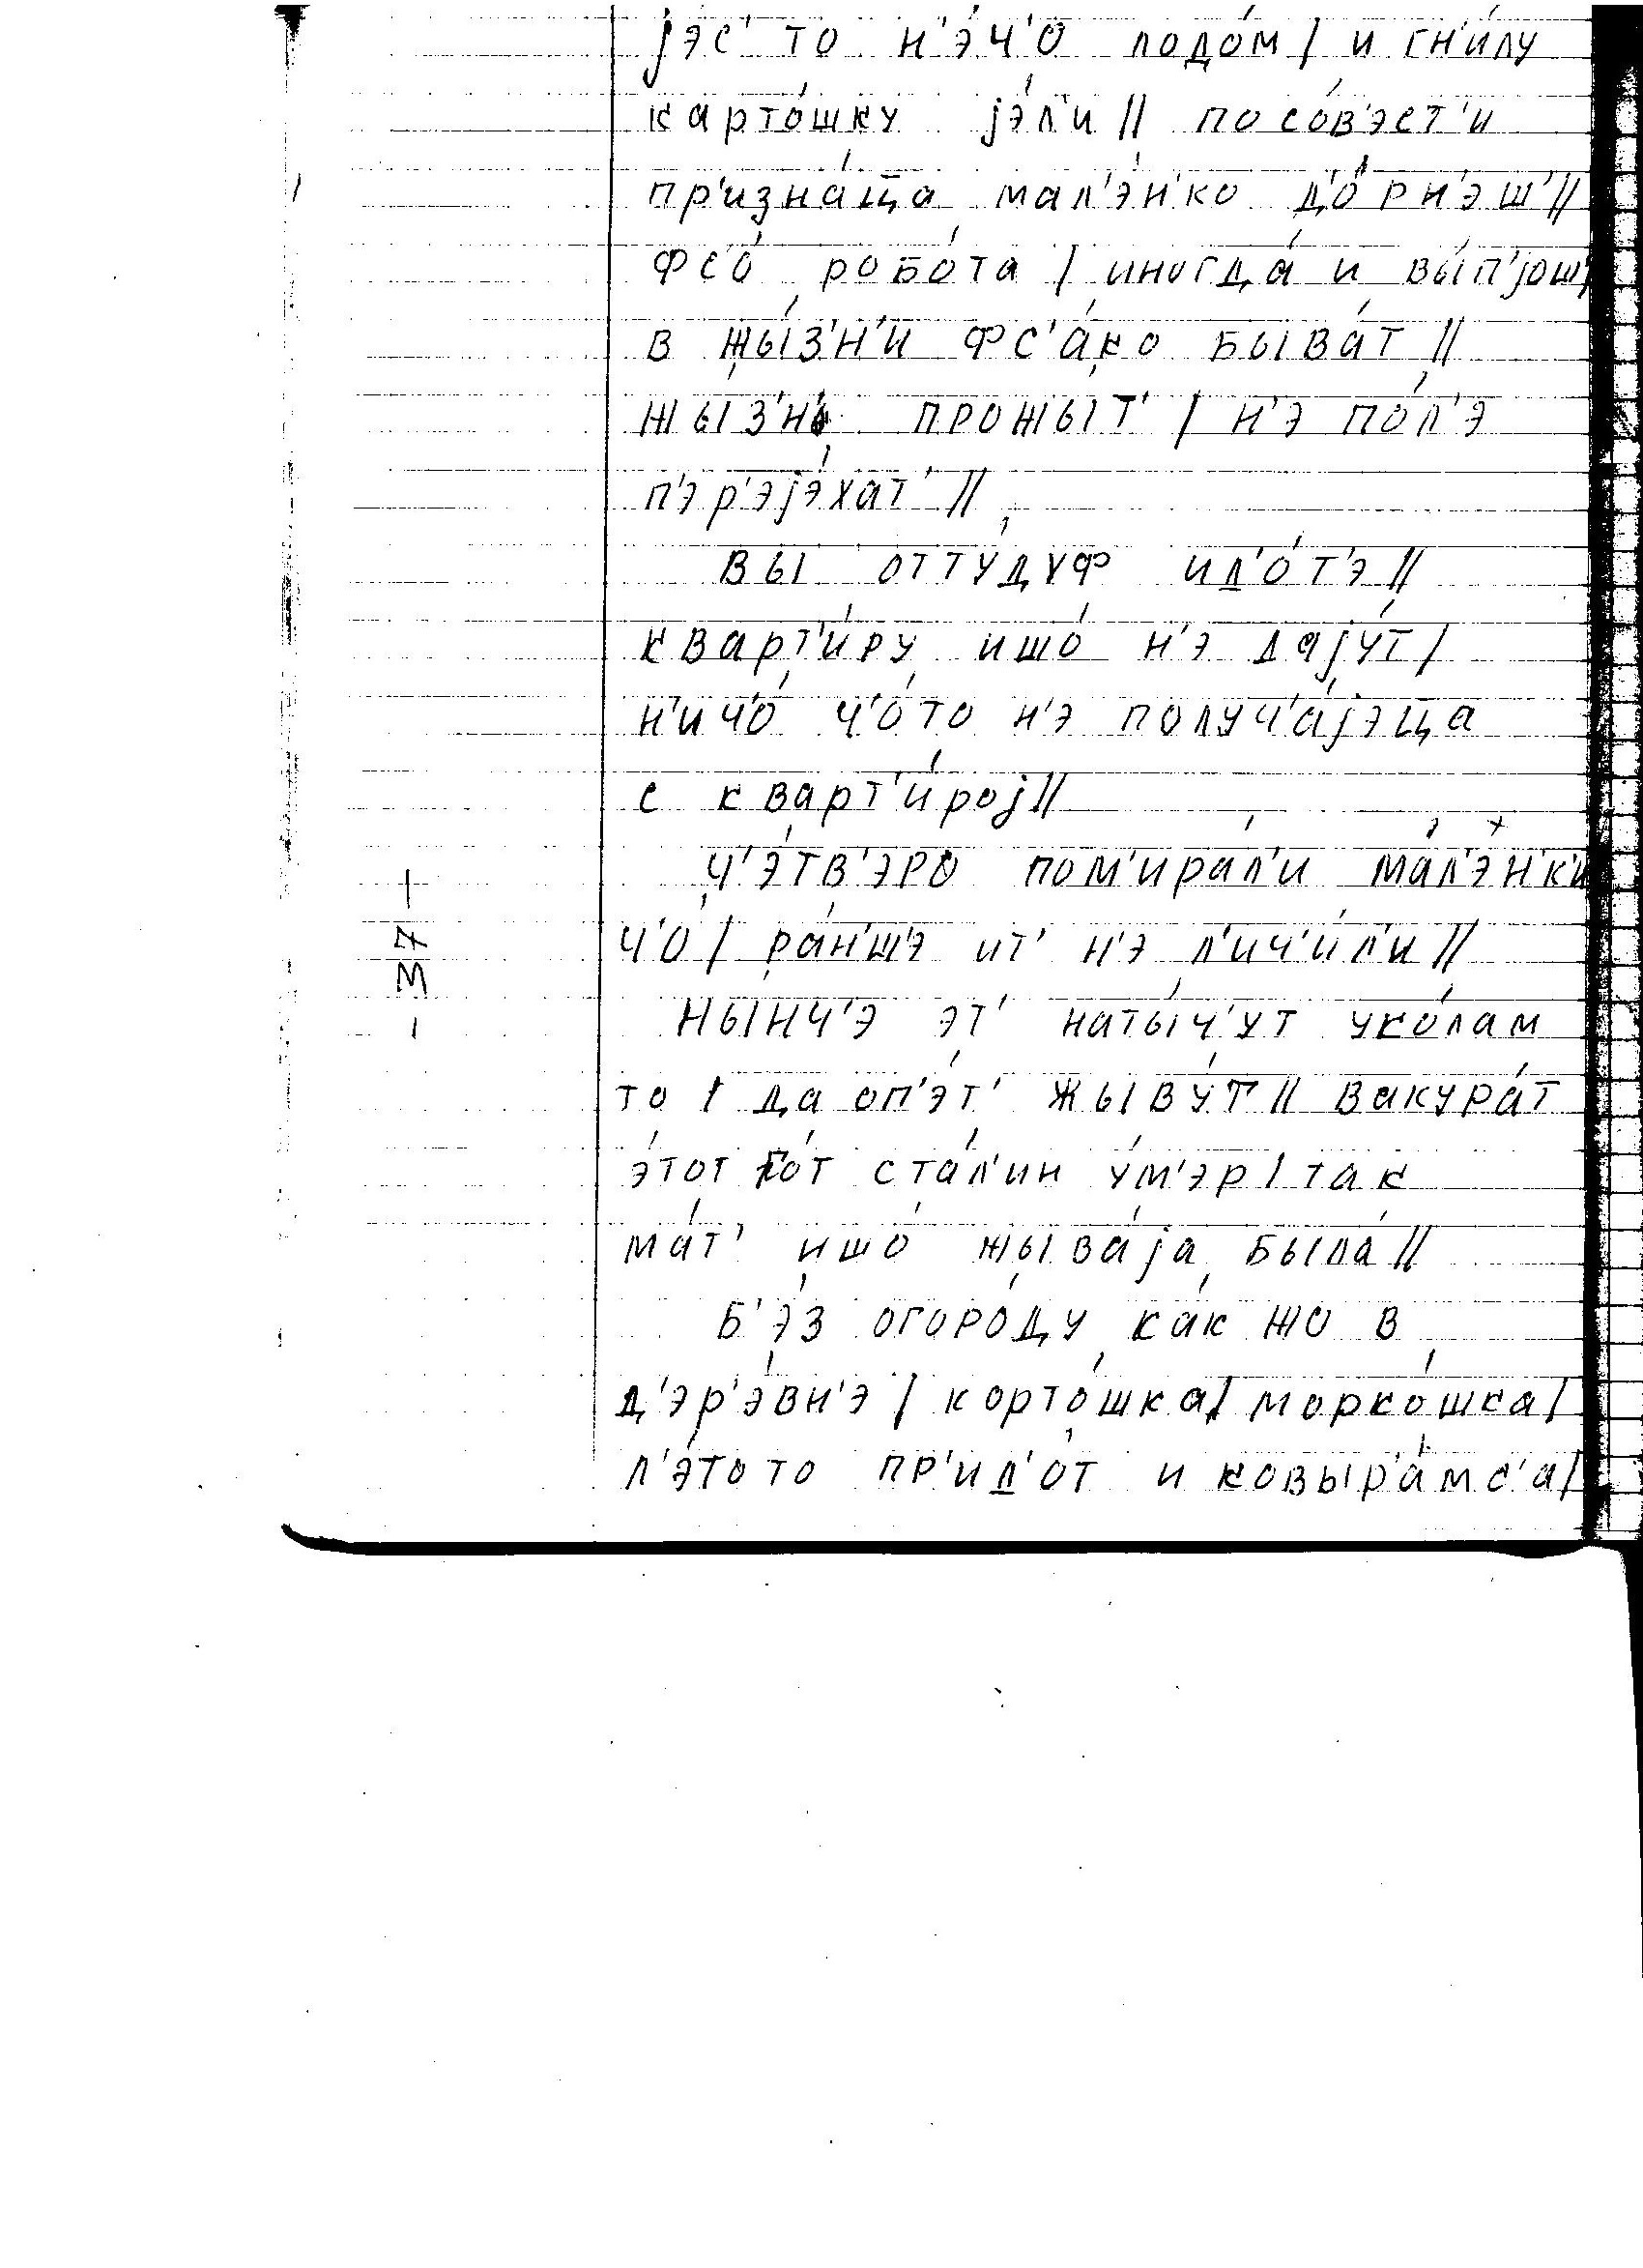 jэс' то н'э́ч'о подо́м / и гн'и́лу
карто́шку jэ́л'и // по со́в'эст'и
пр'изна́ца мал'э́н'ко д'о́рн'эш' //
фс'о́ робо́та / иногда́ и вы́п'jош'/
в жы́з'н'и фс'а́ко быва́т //
жы́з'н' прожы́т' / н'э по́л'э
п'эр'эjэ́хат' //
вы отту́дуф ид'о́т'э //
кварт'и́ру ишо́ н'э даjу́т /
н'ич'о́ ч'о́то н'э получ'а́jэца
с кварт'и́роj //
ч'э́тв'эро пом'ира́л'и ма́л'эн'к'и
ч'о́ / ра́н'ш'э ит' н'э л'ич'и́л'и //
ны́нч'э эт' наты́ч'ут уко́лам
то / да оп'э́т' жыву́т // вакура́т
э́тот го́т ста́л'ин у́м'эр / так
ма́т' ишо́ жыва́jа была́ //
б'э́з огоро́ду ка́к жо в
д'эр'э́вн'э / корто́шка / морко́шка /
л'э́то то пр'ид'о́т и ковыр'а́мс'а /
- 37 -